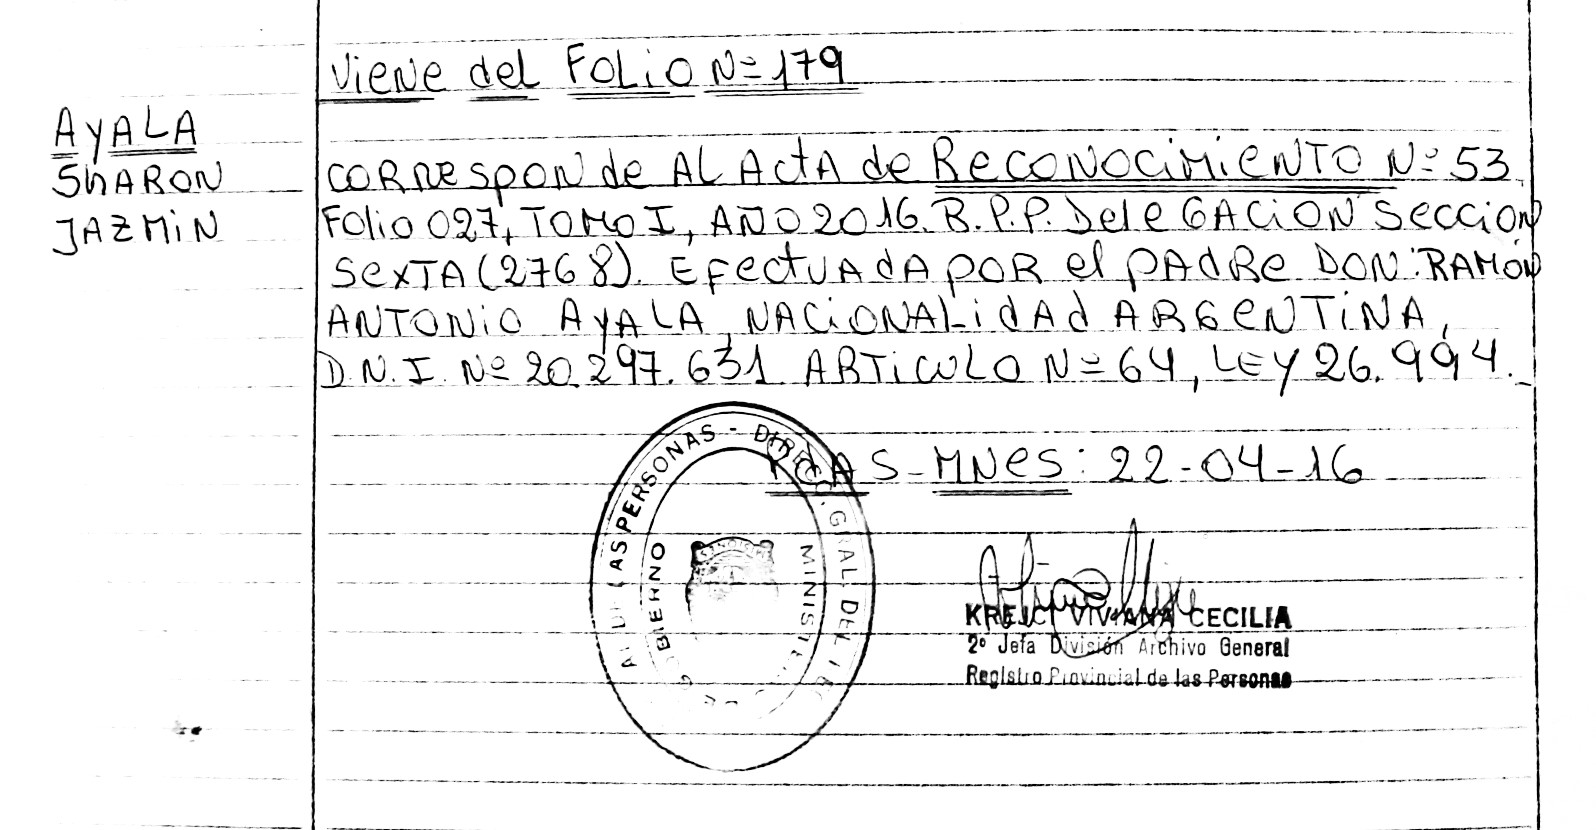 Viene del FOLIO Nº 179
AYALA
SHARON
JAZMIN
CORRESPONde AL ActA de RECONOCIMIENTO Nº 53,
FOLIO 027, TOMO I, AÑO 2016. R.P.P. DeleGACION SECCION
SeXTA (2768). EFECTUAdA POR el PAdRe DON: RAMÓN
ANTONIO AYALA, NACIONALIdAd ARGENTINA,
D.N.I. Nº 20.297.631. ARTICULO Nº 64, LEY 26.994.
S-MNES: 22-04-16
LAS PERSONAS - DIREC. GRAL. DEL
MINISTE
KREJCI VIVIANA CECILIA
2º Jefa División Archivo General
Registro Provincial de las Personas